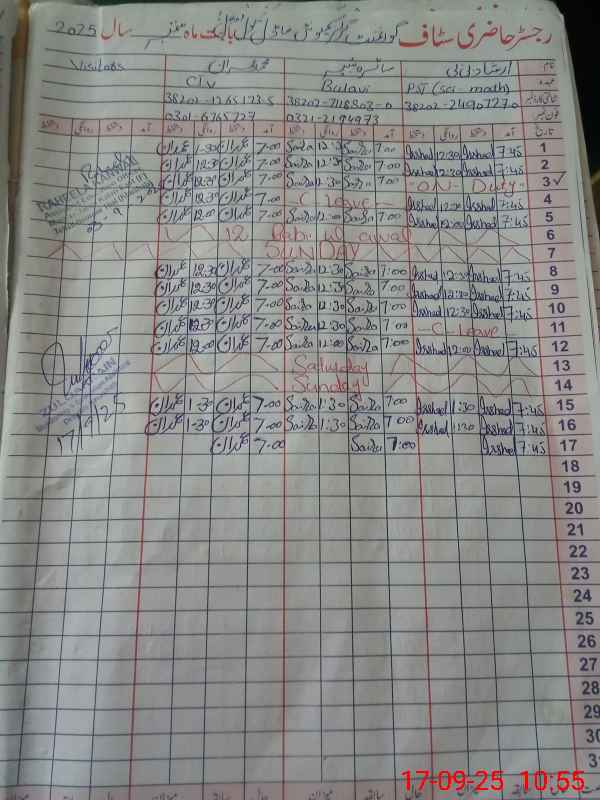 رجسٹر حاضری سٹاف گورنمنٹ گرلز کمیونٹی ماڈل سکول بابت ماہ ستمبر سال 2025
نام ارشاد بی بی سائرہ محمد عمران Visitors
عہدہ PST (sci-math) Balavi CIV
شناختی کارڈ نمبر 38202-2490727-0 38202-7118803-0 38201-1265123-5
فون نمبر 0321-2194973 0301-6765727
تاریخ آمد دستخط روانگی دستخط آمد دستخط روانگی دستخط آمد دستخط روانگی دستخط آمد دستخط روانگی دستخط
1 7:45 Irshad 12:30 Irshad 7:00 Saira 12:30 Saira 7.00 عمران 1-30 عمران
2 7:45 Irshad 12:30 Irshad 7:00 Saira 12:30 Saira 7.00 عمران 12.30 عمران
3 ✓ -ON- Duty- 7:00 Saira 12:30 Saira 7.00 عمران 12.30 عمران
4 7:45 Irshad 12:30 Irshad - C Leave - 7.00 عمران 12.30 عمران
5 7:45 Irshad 12:00 Irshad 7:00 Saira 12:00 Saira 7.00 عمران 12.00 عمران
6 12 Rabi ul awal
7 SUNDAY
8 7:45 Irshad 12:30 Irshad 7:00 Saira 12:30 Saira 7.00 عمران 12.30 عمران
9 7:45 Irshad 12:30 Irshad 7:00 Saira 12:30 Saira 7.00 عمران 12.30 عمران
10 7:45 Irshad 12:30 Irshad 7:00 Saira 12:30 Saira 7.00 عمران 12.30 عمران
11 - C - Leave - 7:00 Saira 12:30 Saira 7.00 عمران 12.30 عمران
12 7:45 Irshad 12:00 Irshad 7:00 Saira 12:00 Saira 7.00 عمران 12.00 عمران
13 Saturday
14 Sunday
15 7:45 Irshad 1:30 Irshad 7:00 Saira 1:30 Saira 7.00 عمران 1-30 عمران
16 7:45 Irshad 1:30 Irshad 7:00 Saira 1:30 Saira 7.00 عمران 1-30 عمران
17 7:45 Irshad 7:00 Saira 7.00 عمران
RAHEELA KANWAL
17/9/25
18
19
20
21
22
23
24
25
26
27
28
29
30
31
17-09-25 10:55